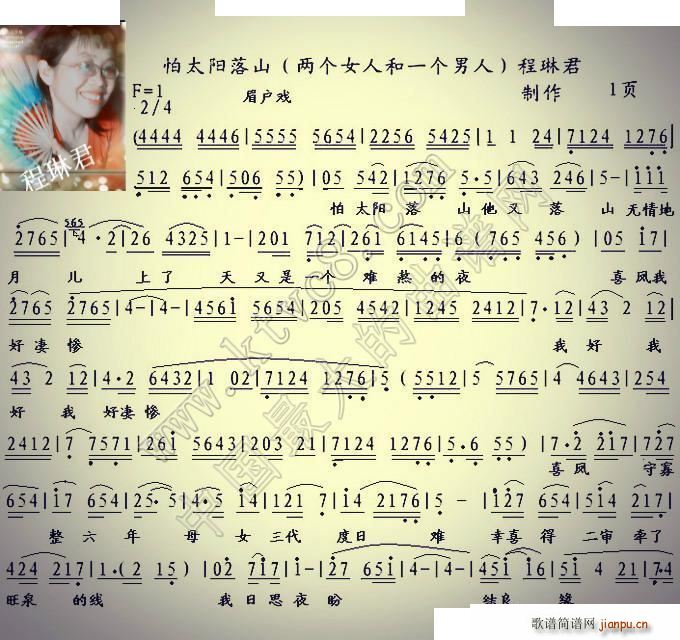 怕太阳落山（两个女人和一个男人）程琳君
F=1
2/4
眉户戏 制作 1页
程琳君
(4444 4446|5555 5654|2256 5425|1 1 24|7124 1276|
512 654|506 55)|05 542|1276 5·5|643 246|5-|111
怕太阳 落 山他又 落 山 无情地
2765|4· 2|26 4325|1-|201 712|261 6145|6(765 456)|05 17|
月 儿 上了 天又是一个 难熬的夜 喜凤我
2765 2765|4-|4-|4561 5654|205 4542|1245 2412|7·12|43 212|
好凄惨 我好 我
43 2 12|4·2 6432|1 02|7124 1276|5(5512|5 5765|4 4643|254
好 我 好凄惨
2412|7 7571|261 5643|203 21|7124 1276|5·6 55)|7·2 217|727
喜凤 守寡
654|17 654|25·5|4·5 24|121 7|14 2176|5-|127 654|217 654|
整六年 母女三代 度日 难 幸喜得 二审牵了
424 217|1·(2 15)|217 6 5|27 651|4-|4-|451 51|21|7·4
旺泉 的线 我日思夜盼 结良 缘
www.ktvc8.com
中国最大的曲谱网
歌谱简谱网
jianpu.cn